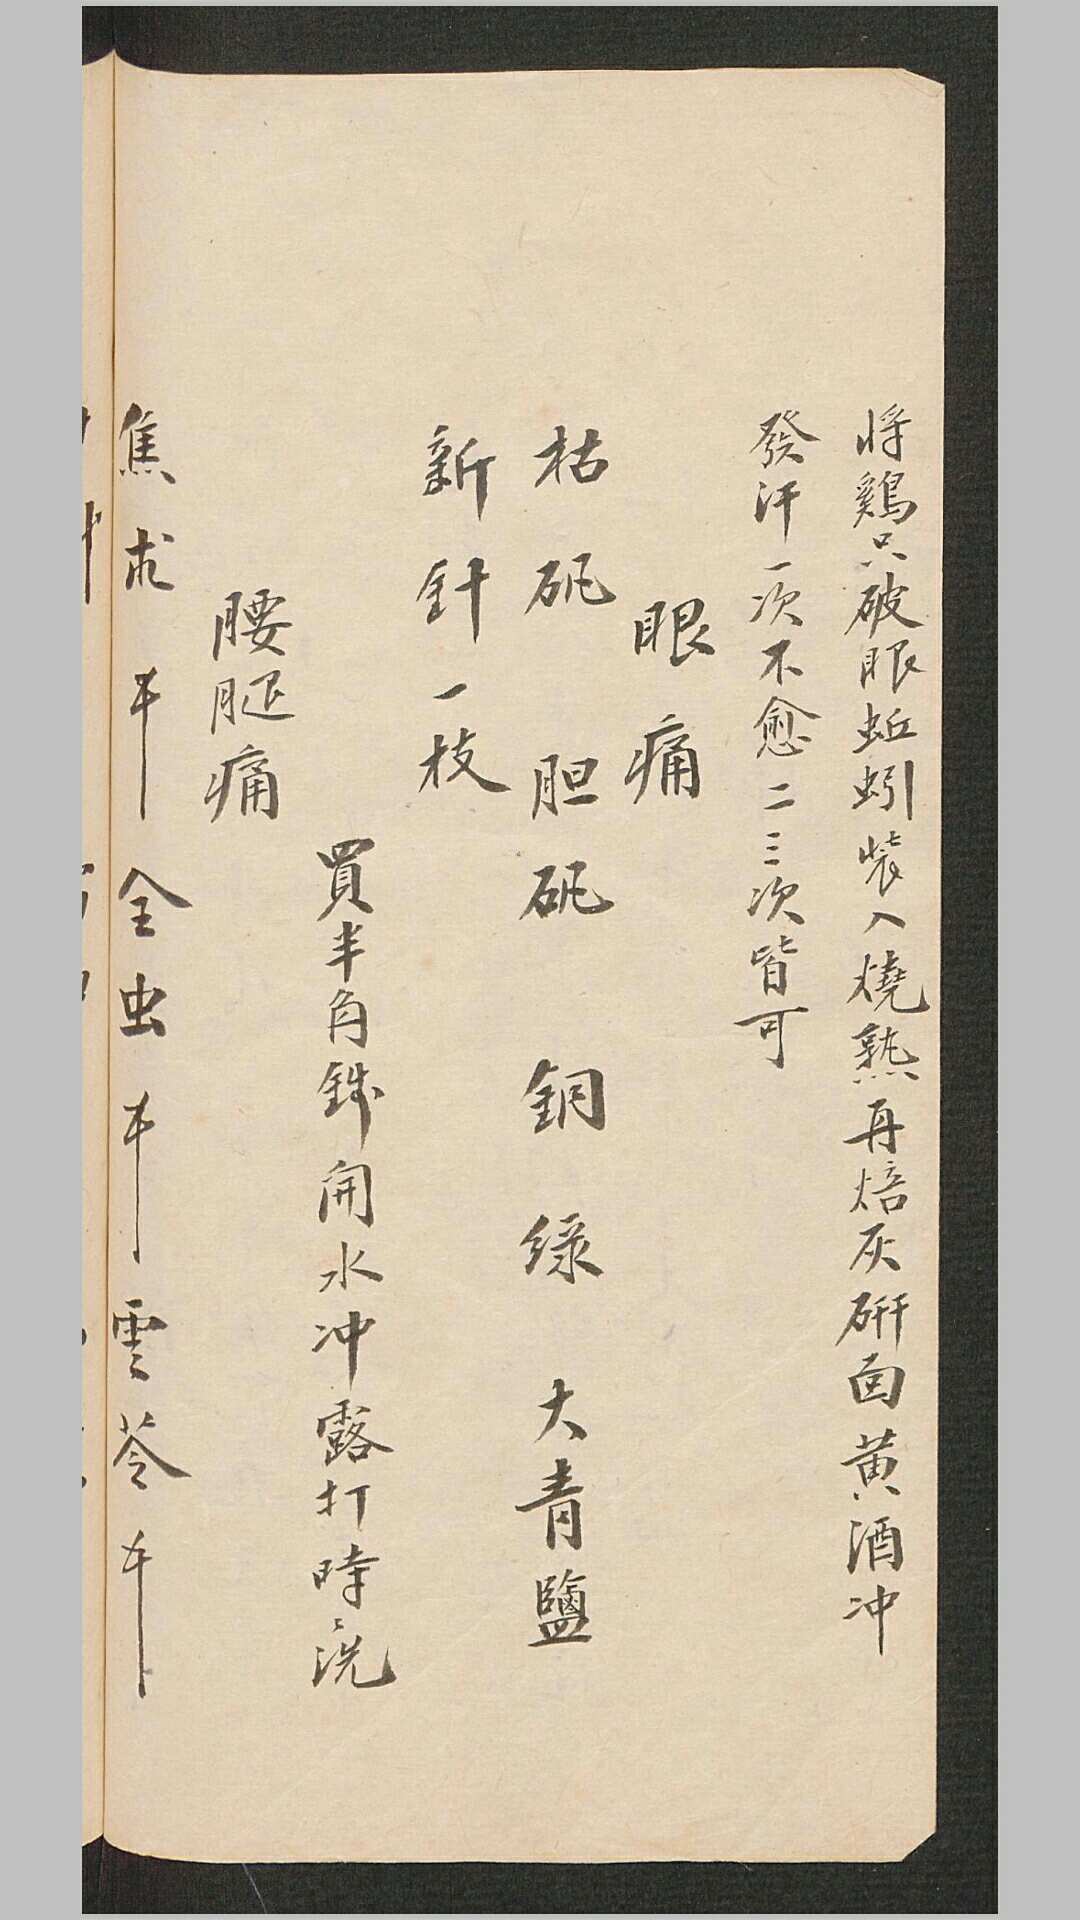 將鷄只破眼蚯蚓裝入燒熟再焙灰研面黄酒冲
發汗一次不愈二三次皆可
眼痛
枯矾胆矾銅綠大青鹽
新針一枝
買半角錢開水冲露打時時洗
腰腿痛
焦朮 全虫 雲苓